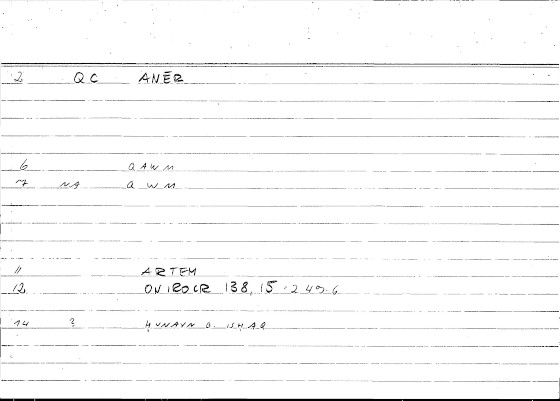 2 QC ANĒR
6 QAWM
7 NA QWM
11 ARTEM
12 ONIROCR 138, 15 - 249.6
14 ? HUNAYN B. ISHAQ